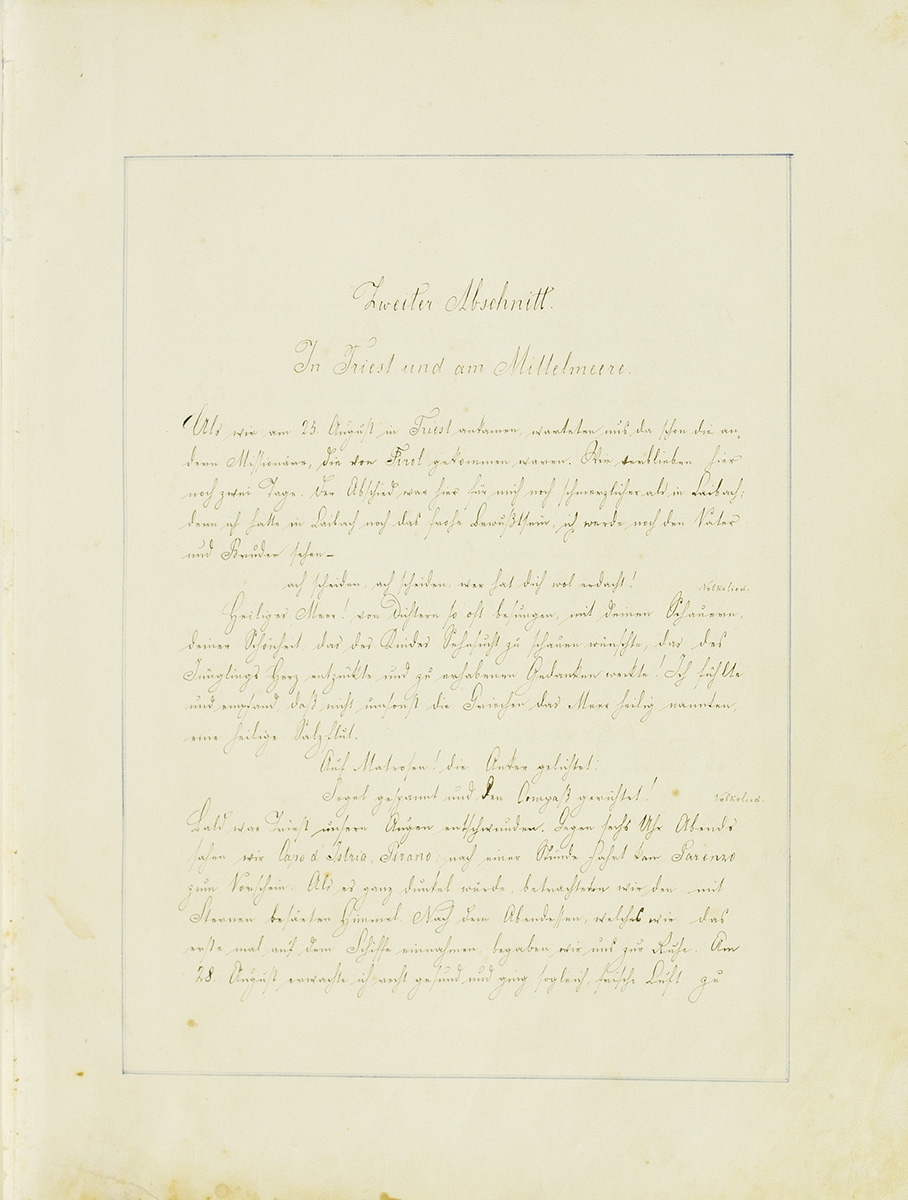 Zweiter Abschnitt.
In Triest und am Mittelmeere.
Als wir am 25. August in Triest ankamen, warteten uns da schon die an-
dern Missionäre, die von Tirol gekommen waren. Wir verblieben hier
noch zwei Tage. Der Abschied war hier für mich noch schmerzlicher als in Laibach;
denn ich hatte in Laibach noch das frohe Bewußtsein, ich werde noch den Vater
und Bruder sehen –
ach scheiden, ach scheiden, wer hat dich wol erdacht! Volkslied.
Heiliges Meer! von Dichtern so oft besungen, mit deinen Schauern,
deiner Schönheit, das des Kindes Sehnsucht zu schauen wünschte, das des
Jünglings Herz entzückte und zu erhabenen Gedanken weckte! Ich fühlte
und empfand, daß nicht umsonst die Griechen das Meer heilig nannten,
eine heilige Salzflut.
Auf Matrosen! die Anker gelichtet.
Segel gespannt und den Compaß gerichtet! Volkslied.
Bald war Triest unsern Augen entschwunden. Gegen sechs Uhr Abends
sahen wir Capo d'Istria, Pirano, nach einer Stunde Fahrt kam Parenzo
zum Vorschein. Als es ganz dunkel wurde, betrachteten wir den mit
Sternen besäeten Himmel. Nach dem Abendessen, welches wir das
erste mal auf dem Schiffe einnahmen, begaben wir uns zur Ruhe. Am
28. August erwachte ich recht gesund und ging sogleich, frische Luft zu